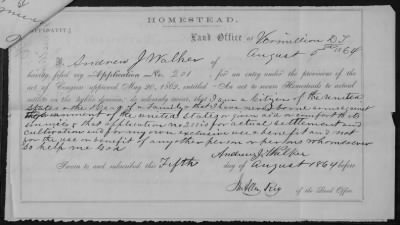 HOMESTEAD.
(AFFIDAVIT.)
Land Office at Vermillion D.T.
August 5th 1864
I, Andrew J Walker of
having filed my Application No. 201 for an entry under the provisions of the
act of Congress approved May 20, 1862, entitled "An act to secure Homesteads to actual
settlers on the public domain," do solemnly swear, that I am a Citizen of the United
States & the Head of a Family & that I have never borne arms against
the Government of the United States or given aid or comfort to its
enemies & that application no 201 is for actual settlement and
cultivation and for my own exclusive use & benefit and not
for the use or benefit of any other person or persons whomsoever
So help me God
Andrew J Walker
Sworn to and subscribed this Fifth day of August 1864 before
Reg
of the Land Office.